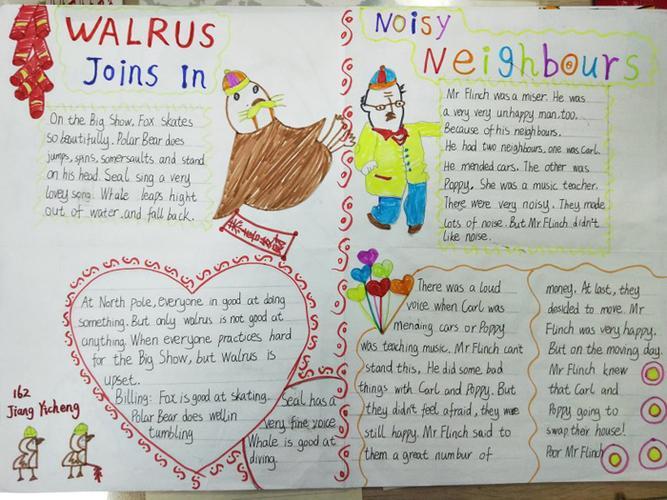 WALRUS
Joins In
On the Big Show, Fox skates
so beautifully. Polar Bear does
jumps, spins, somersaults and stand
on his head. Seal sing a very
lovey song. Whale leaps hight
out of water and fall back.
At North pole, everyone in good at doing
something. But only walrus is not good at
anything. When everyone practices hard
for the Big Show, but Walrus is
upset.
Billing: Fox is good at skating.
Polar Bear does wellin
tumbling
Seal has a
very fine voice
Whale is good at
diving.
162
Jiang Yicheng
NOisy
Neighbours
Mr Flinch was a miser. He was
a very very unhappy man, too.
Because of his neighbours.
He had two neighbours. one was Carl.
He mended cars. The other was
Poppy. She was a music teacher.
There were very noisy. They made
lots of noise. But Mr Flinch didn't
like noise.
There was a loud
voice when Carl was
mending cars or Poppy
was teaching music. Mr Flinch can't
stand this, He did some bad
things with Carl and Poppy. But
they didn't feel afraid, they were
still happy. Mr Flinch said to
them a great number of
money. At last, they
decided to move. Mr
Flinch was very happy.
But on the moving day.
Mr Flinch knew
that Carl and
Poppy going to
swap their house!
Poor Mr Flinch